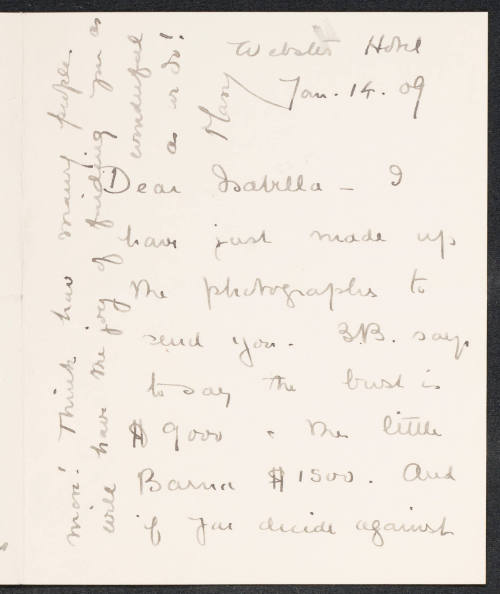 Webster Hotel
Jan. 14. 09
Dear Isabella — I
have just made up
the photographs to
send you. B.B. says
to say the bust is
$9000 & the little
Barna $1500. And
if you decide against
more! Think how many people
will have the joy of finding you as
wonderful
as we do!
Mary